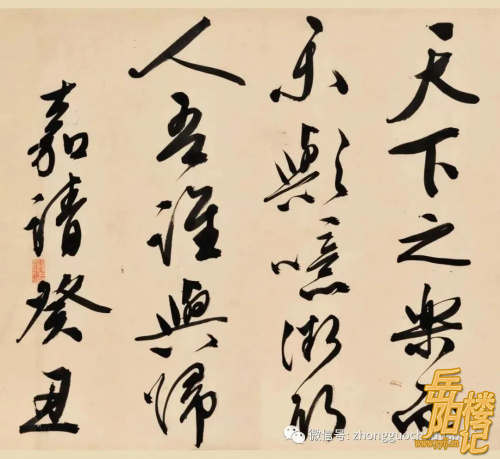 天下之樂而
樂歟噫微斯
人吾誰與歸
嘉靖癸丑
微信号: zhongguock
岳阳楼记